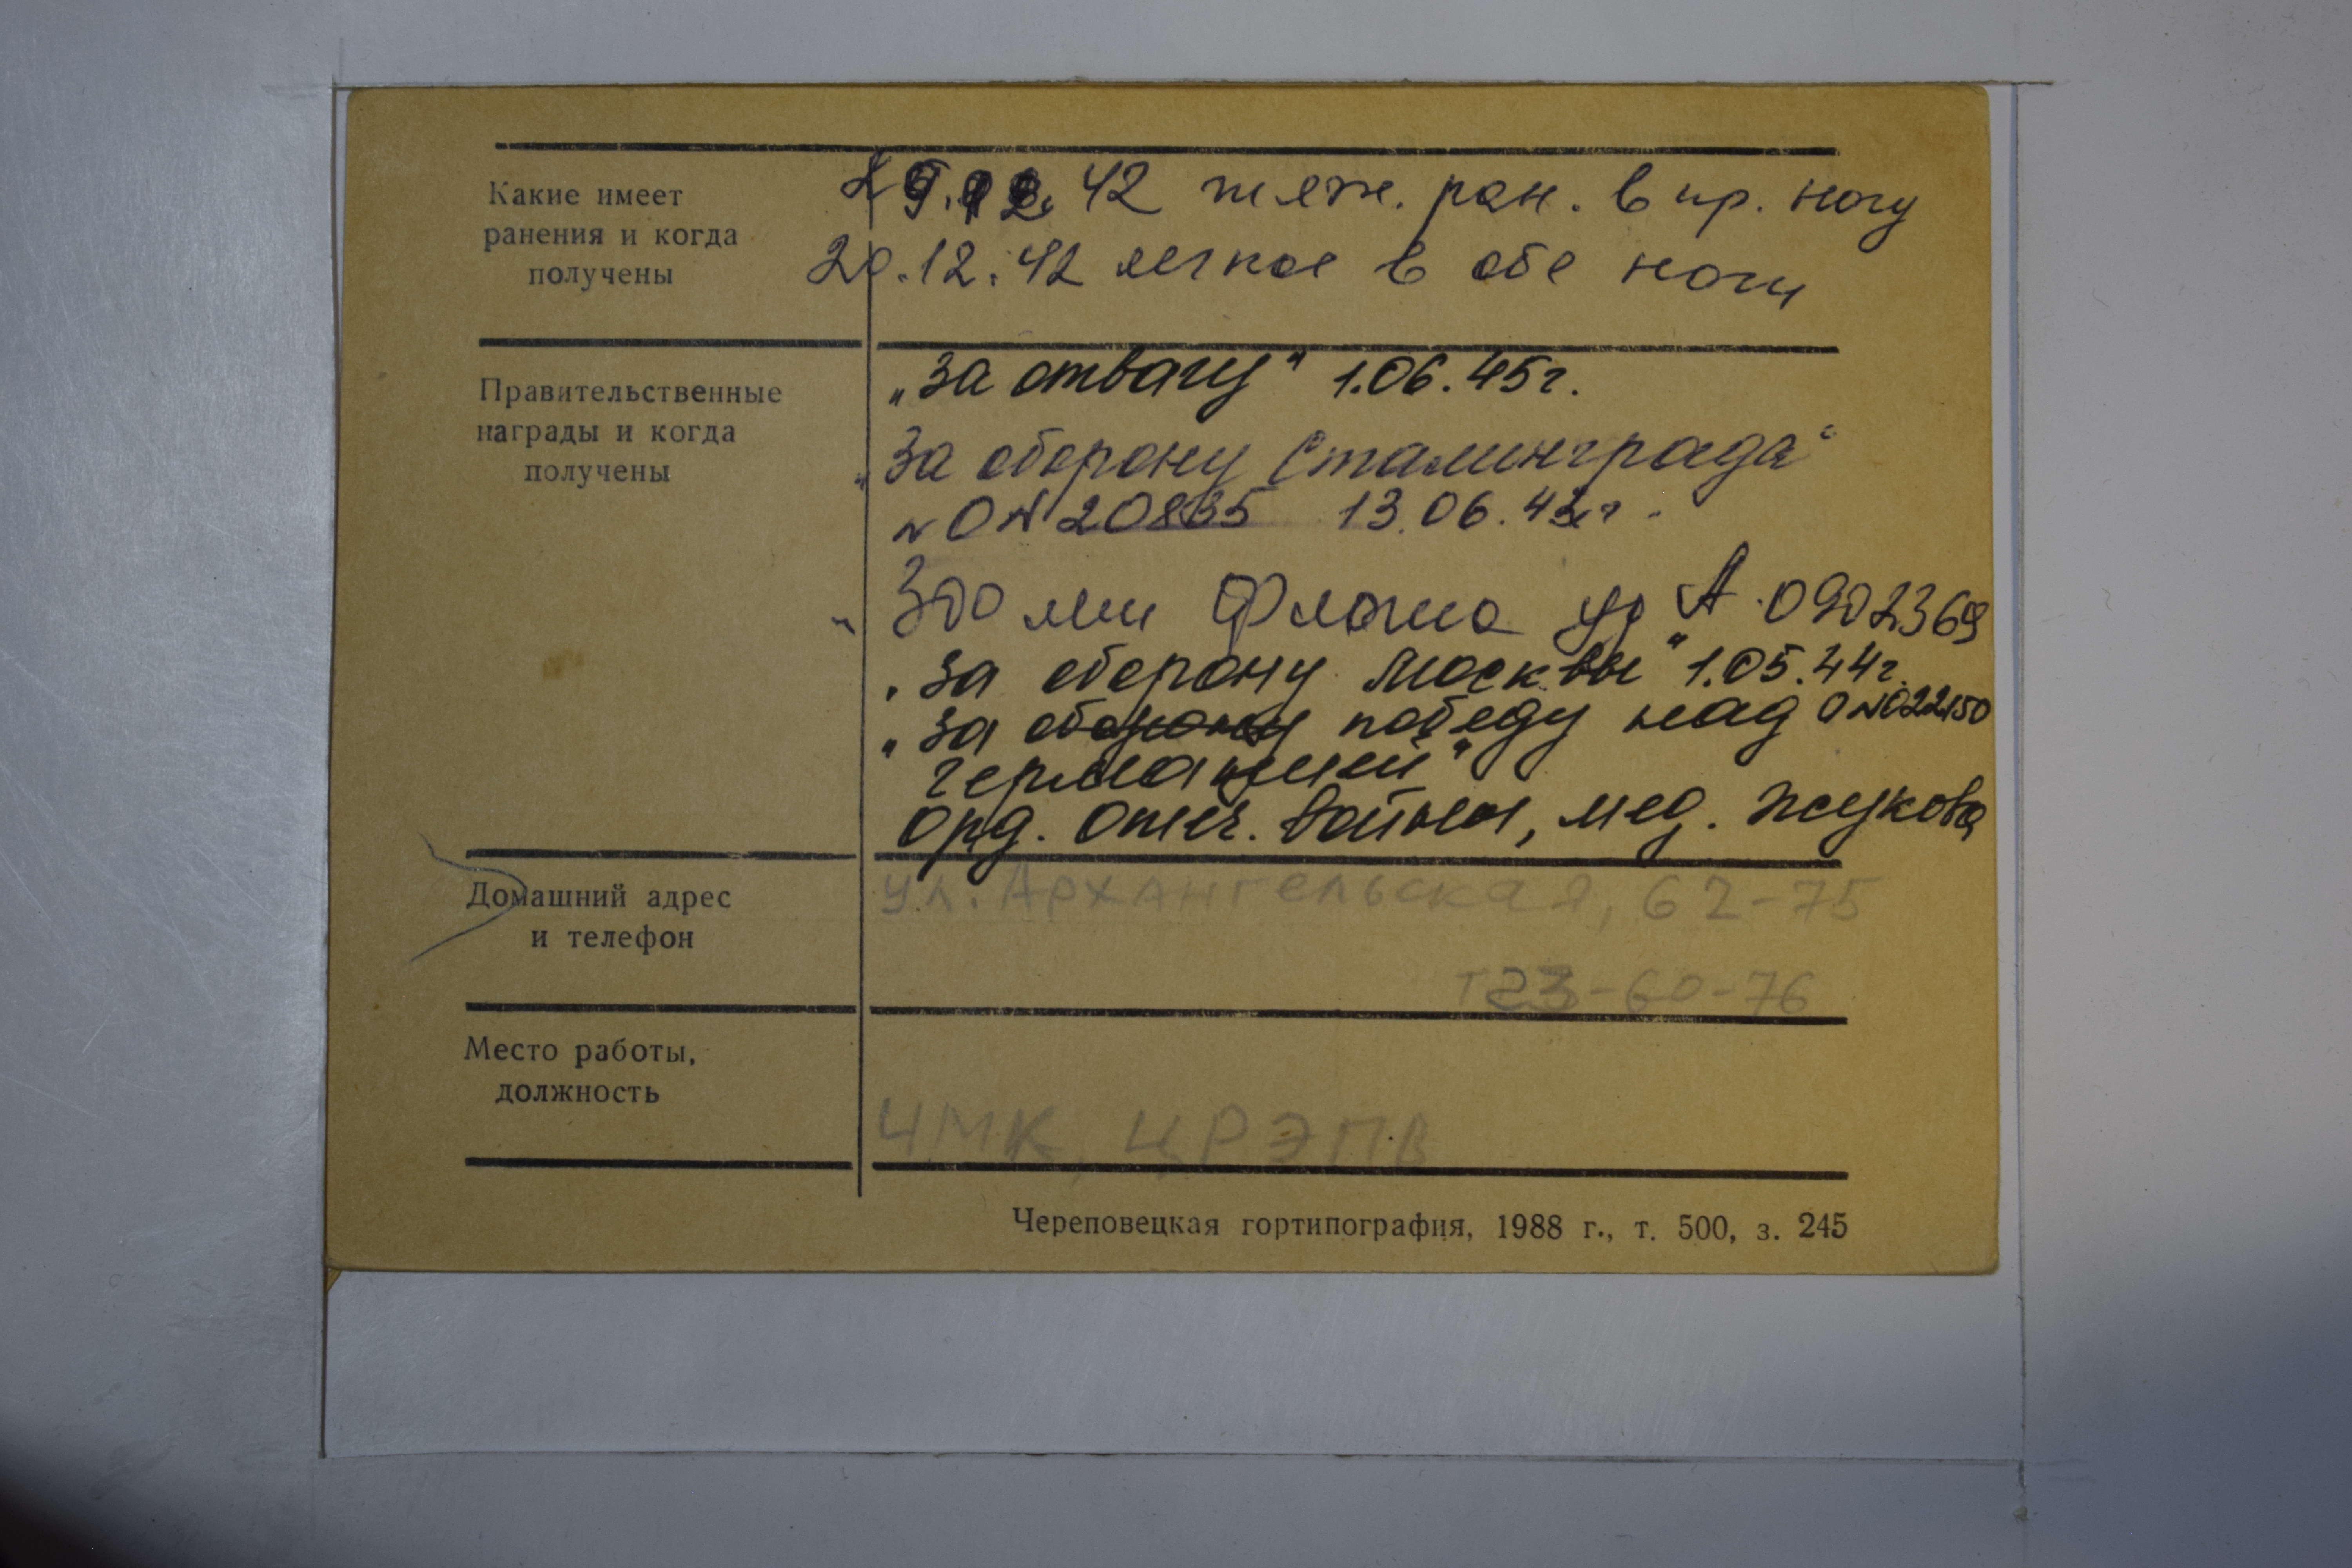 Какие имеет
ранения и когда
получены
42 тяж. ран. в пр. ногу
20.12.42 легкое в обе ноги
Правительственные
награды и когда
получены
„За отвагу" 1.06.45г.
„За оборону Сталинграда"
№ ОN 20835 13.06.43г.
„300 лет Флота уд А 0902369
„За оборону Москвы" 1.05.44г.
„За оборону победу над ОN022150
германией"
Орд. Отеч. Войны, мед. Жукова
Домашний адрес
и телефон
ул. Архангельская, 62-75
т 23-60-76
Место работы,
должность
ЧМК, ЦРЭПВ
Череповецкая гортипография, 1988 г., т. 500, з. 245